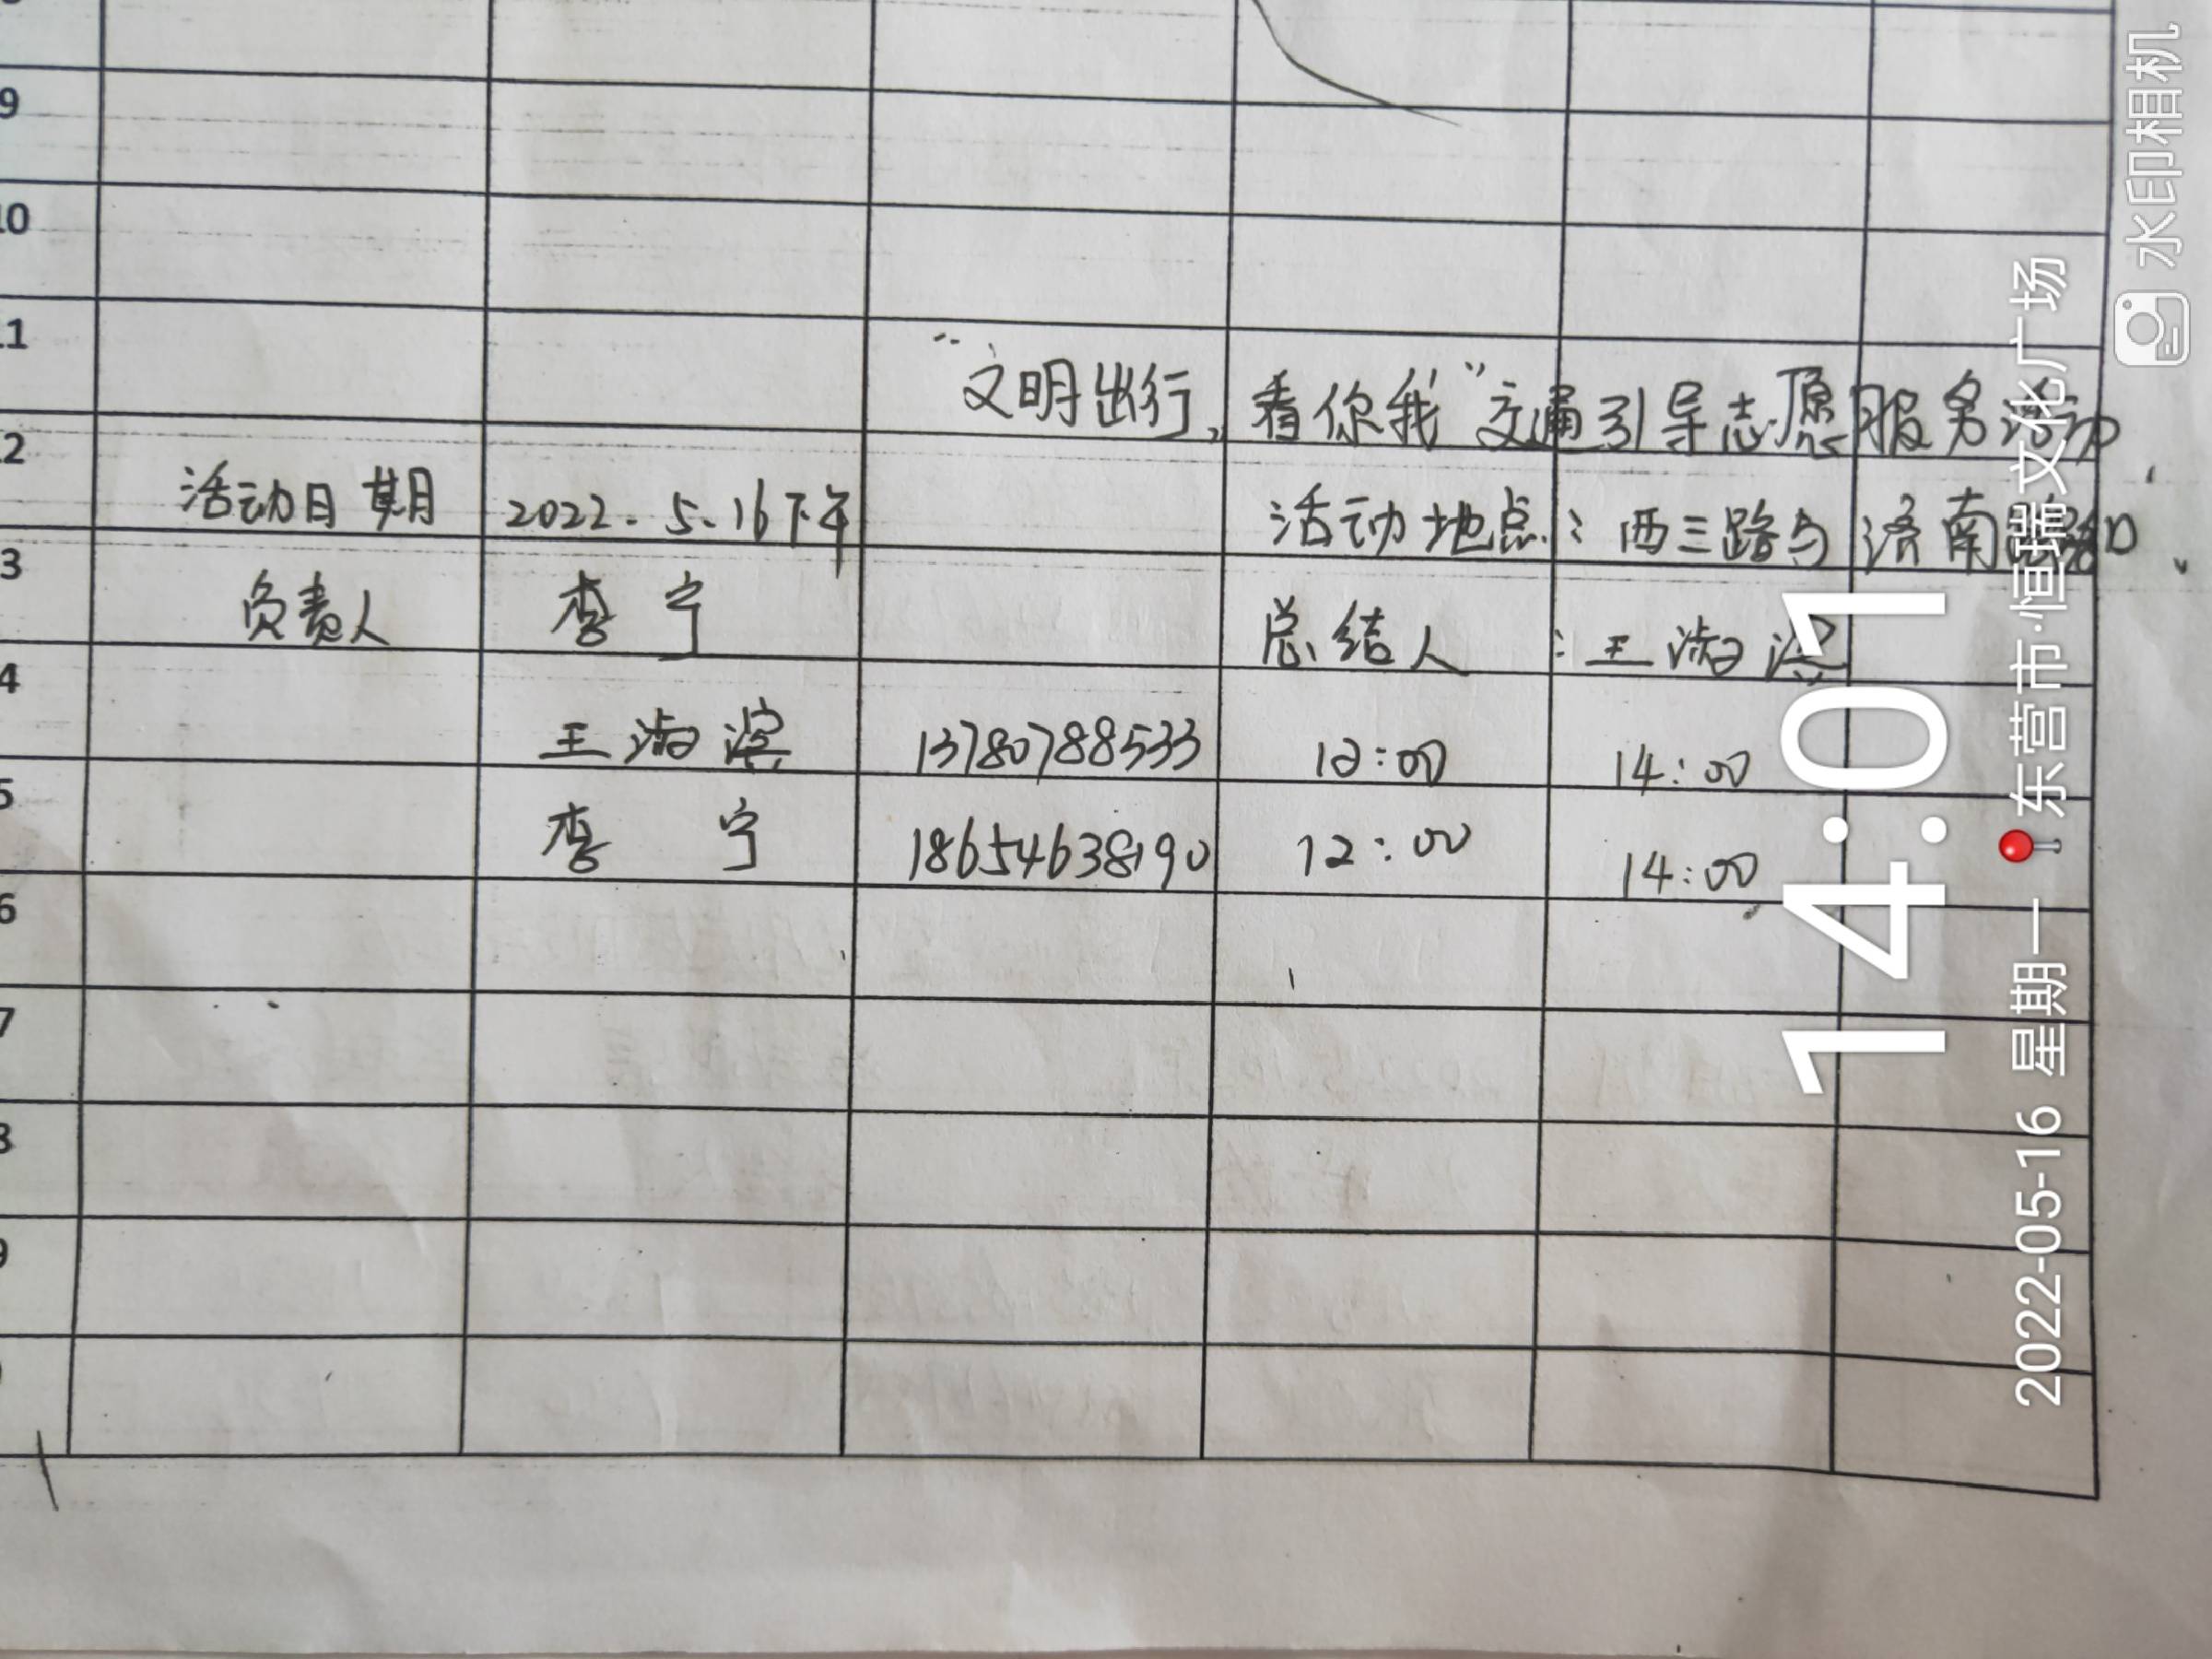 9
10
11
"文明出行,看你我"交通引导志愿服务活动
2
活动日期 2022.5.16下午 活动地点:西三路与济南路口
3
负责人 李宁 总结人:王淑滨
4
王淑滨 13780788533 12:00 14:00
5
李宁 18654638190 12:00 14:00
6
7
8
9
水印相机
14:01
2022-05-16 星期一 东营市·恒瑞文化广场